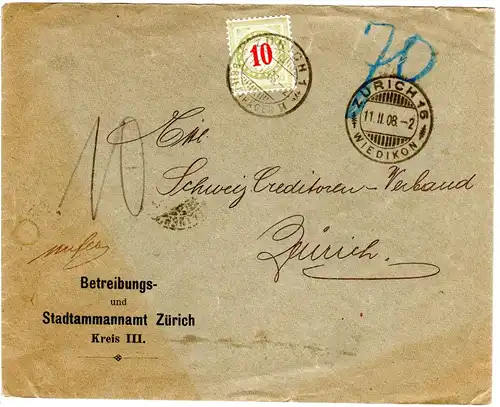 10
70
ZÜRICH 16
11. II. 08. - 2
WIEDIKON
10
Schweiz. Creditoren-Verband
Zürich.
Betreibungs-
und
Stadtammannamt Zürich
Kreis III.